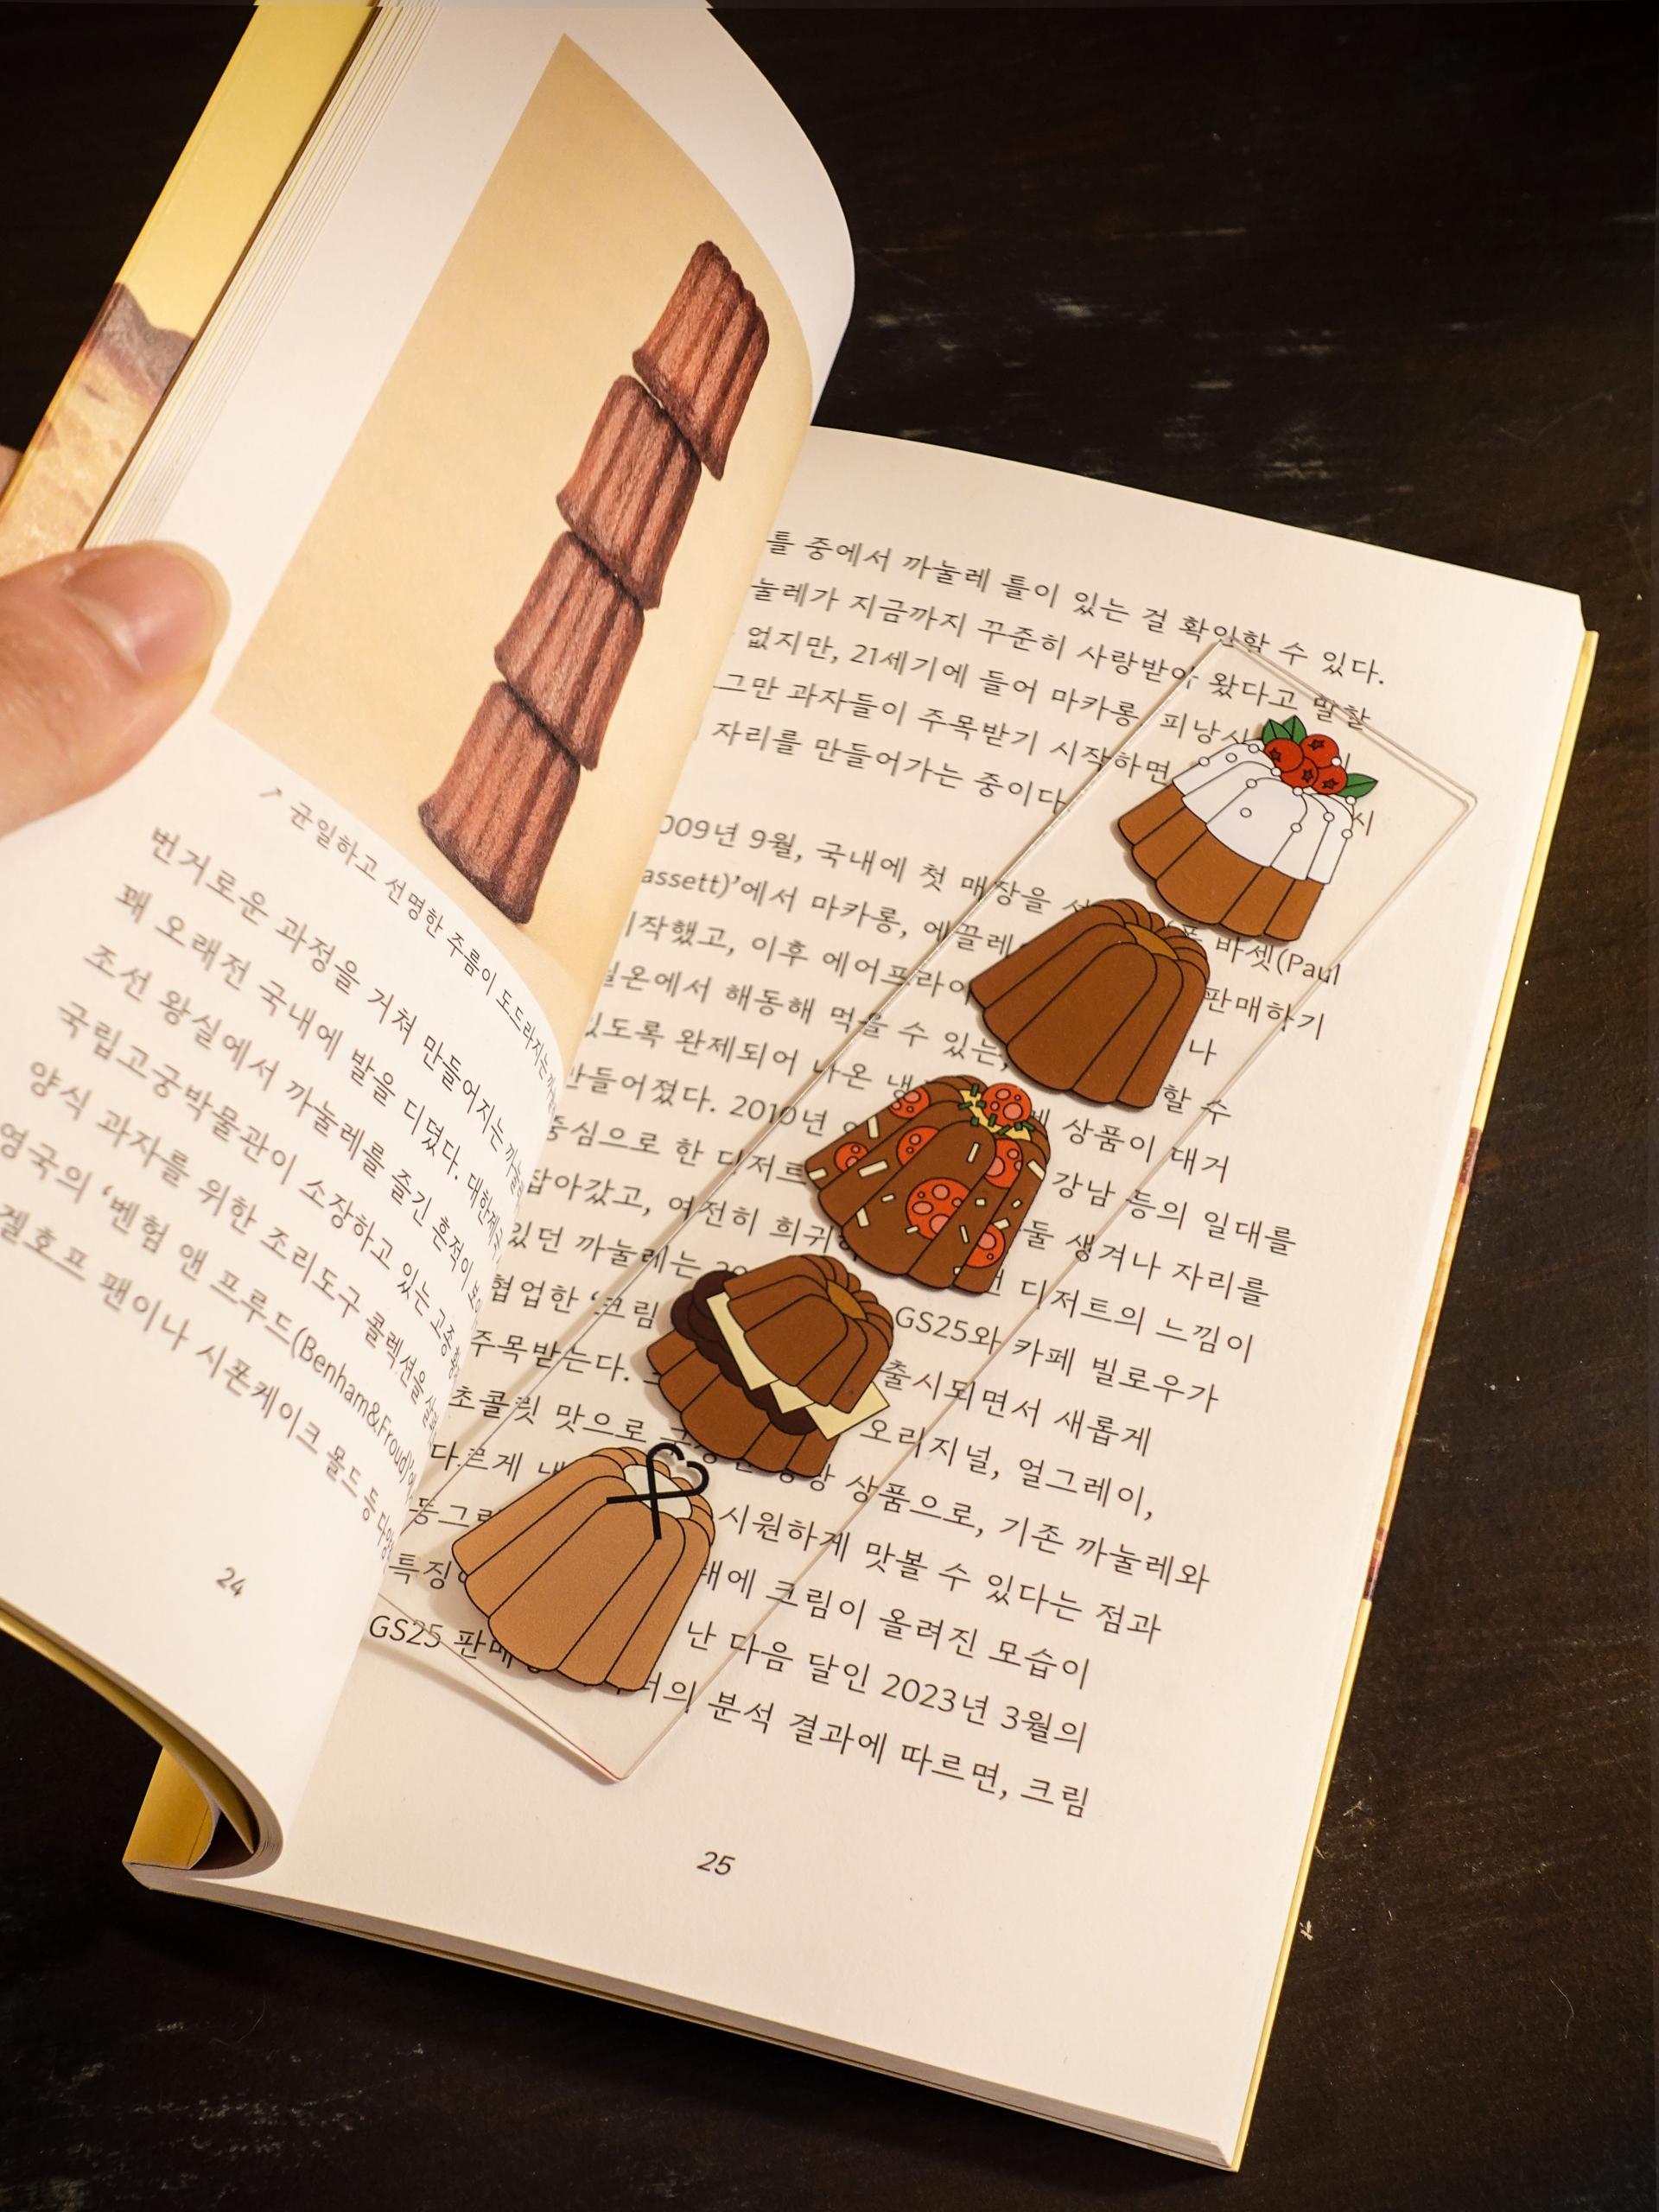 ↗ 균일하고 선명한 주름이 도드라지는
번거로운 과정을 거쳐 만들어지는 까눌
꽤 오래전 국내에 발을 디뎠다. 대한제국
조선 왕실에서 까눌레를 즐긴 흔적이
국립고궁박물관이 소장하고 있는 고종
양식 과자를 위한 조리도구 콜렉션을
영국의 ‘벤험 앤 프루드(Benham&Froud)’
겔호프 팬이나 시폰케이크 몰드 등
24
틀 중에서 까눌레 틀이 있는 걸 확인할 수 있다.
눌레가 지금까지 꾸준히 사랑받아 왔다고 말할
없지만, 21세기에 들어 마카롱, 피낭시
그만 과자들이 주목받기 시작하면
자리를 만들어가는 중이다
009년 9월, 국내에 첫 매장을 바셋(Paul
assett)’에서 마카롱, 에끌레 판매하기
시작했고, 이후 에어프라이 나
실온에서 해동해 먹을 수 있는, 할 수
있도록 완제되어 나온 냉 상품이 대거
만들어졌다. 2010년 강남 등의 일대를
중심으로 한 디저트 둘 생겨나 자리를
잡아갔고, 여전히 희귀 디저트의 느낌이
있던 까눌레는 GS25와 카페 빌로우가
협업한 ‘크림 출시되면서 새롭게
주목받는다. 오리지널, 얼그레이,
초콜릿 맛으로 상품으로, 기존 까눌레와
다르게 시원하게 맛볼 수 있다는 점과
동그 크림이 올려진 모습이
특징 난 다음 달인 2023년 3월의
GS25 판매 분석 결과에 따르면, 크림
25